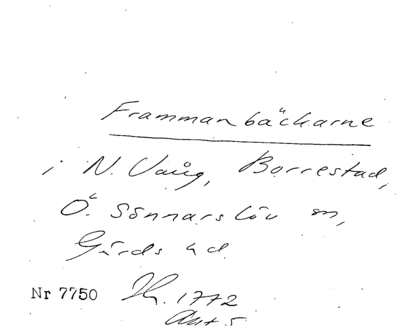 Frammanbäckarne
i N. Vång, Borrestad,
Ö. Sönnarslöv sn,
Gärds hd
Nr 7750 1772
Akt 5